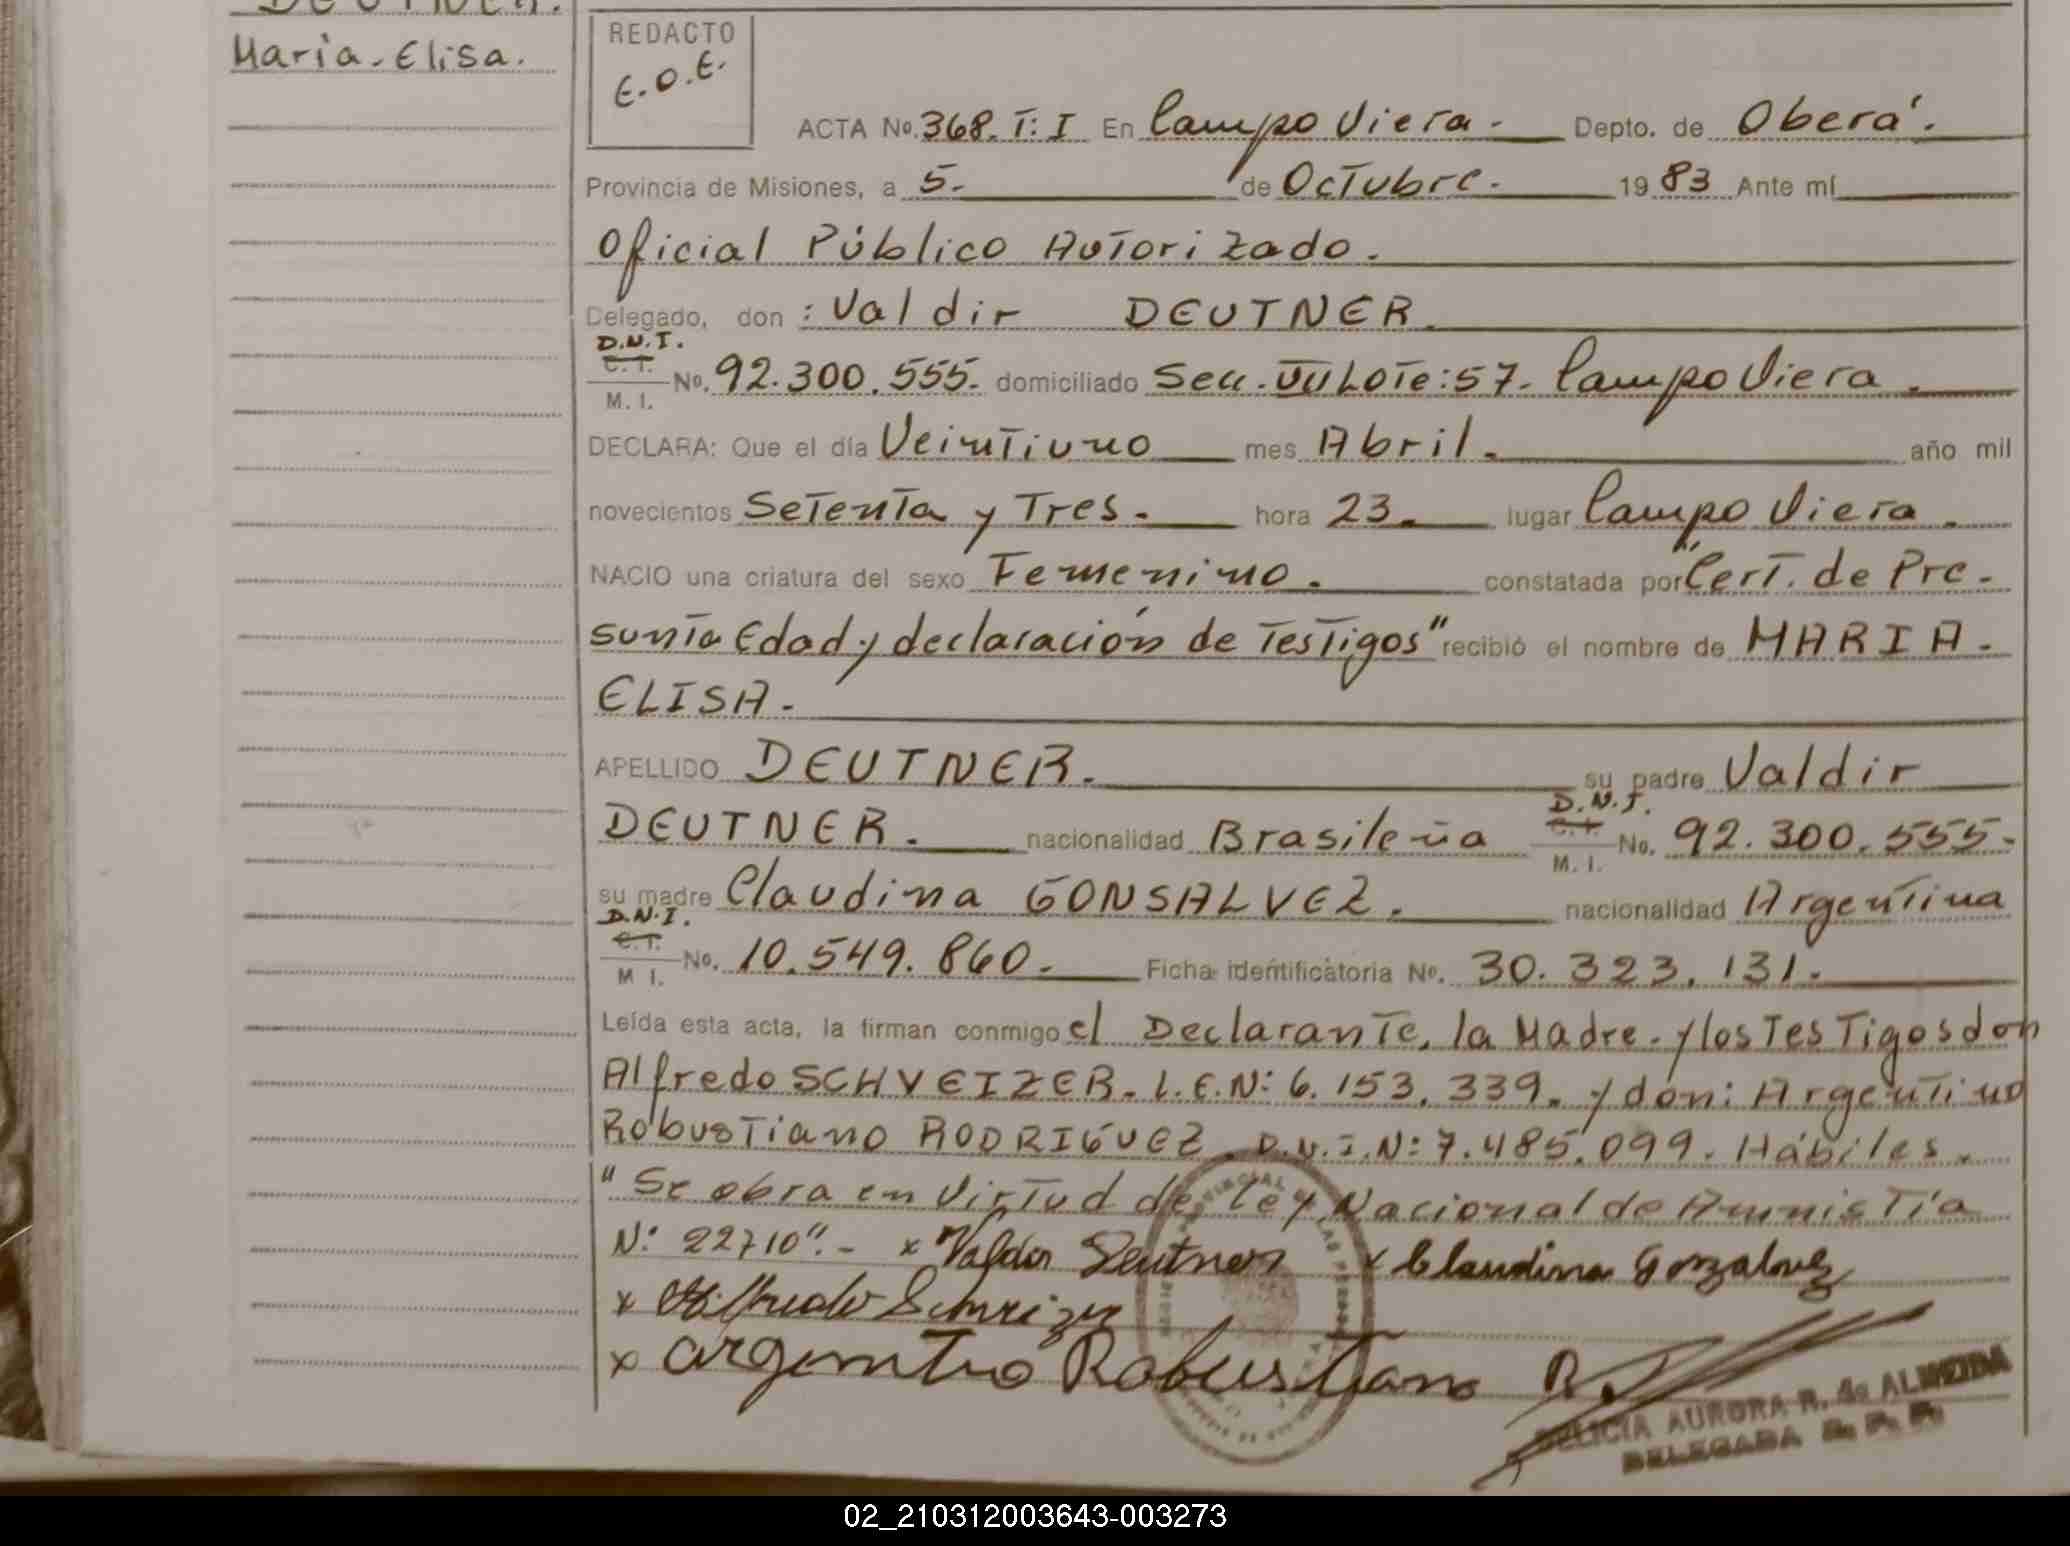 DEUTNER.
Maria - Elisa.
REDACTO
E.O.E.
ACTA No. 368. T: I En Campo Viera - Depto. de Oberá.
Provincia de Misiones, a 5. de Octubre. 1983 Ante mí
Oficial Público Autorizado.
Delegado, don : Valdir DEUTNER
D.N.I.
C. I.
M. I.
No. 92.300.555. domiciliado Secc. VII Lote: 57. Campo Viera.
DECLARA: Que el día Veintiuno mes Abril. año mil
novecientos Setenta y Tres. hora 23. lugar Campo Viera.
NACIO una criatura del sexo Femenino. constatada por "Cert. de Pre-
sunta Edad y declaración de Testigos" recibió el nombre de MARIA -
ELISA.-
APELLIDO DEUTNER. su padre Valdir
DEUTNER. nacionalidad Brasileña D.N.I. C. I. M. I. No. 92.300.555.
su madre Claudina GONSALVEZ. nacionalidad Argentina
D.N.I.
C. I.
M I.
No. 10.549.860. Ficha identificatoria No. 30.323.131.
Leída esta acta, la firman conmigo el Declarante, la Madre. y los Testigos don
Alfredo SCHVEIZER. L.E.N: 6.153.339. y don: Argentino
Robustiano RODRIGUEZ. D.N.I.N: 7.485.099. Hábiles.
"Se obra en Virtud de Ley Nacional de Amnistía
N: 22710".- x Valdir Deutner x Claudina Gonzalvez
x Alfredo Schveizer
x Argentino Robustiano R.
DELICIA AURORA R. de ALMEIDA
DELEGADA
02_210312003643-003273